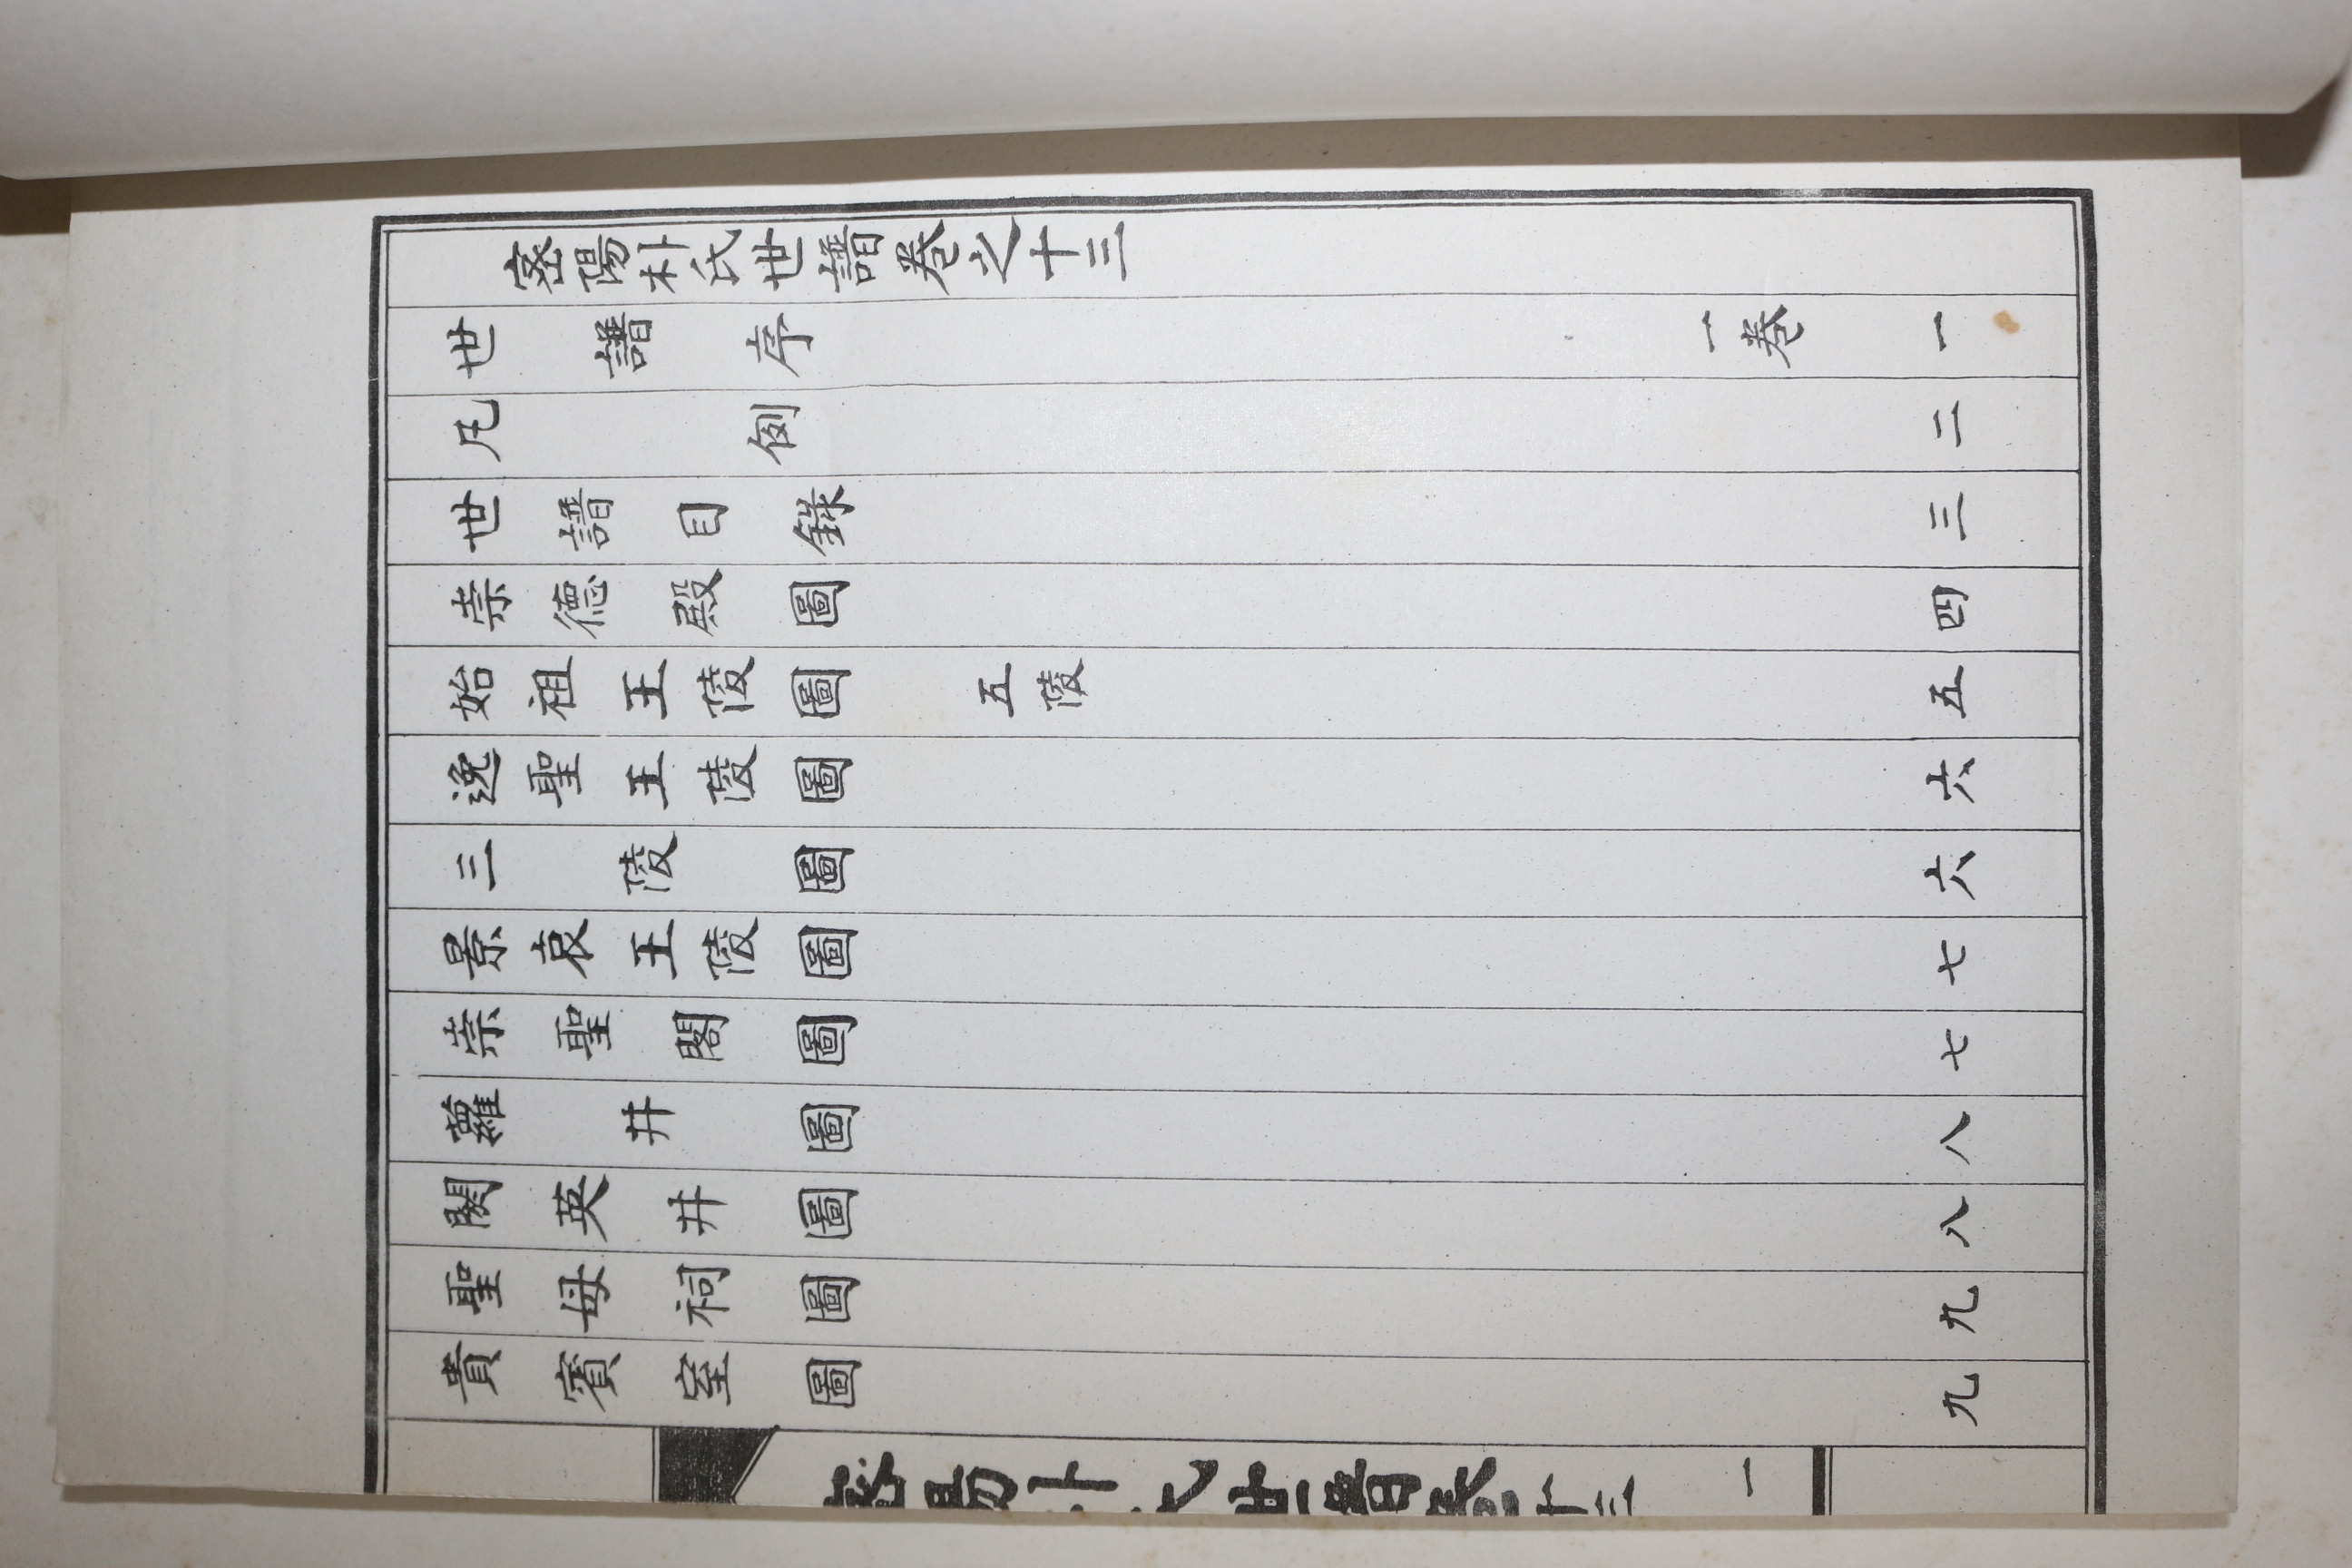 密陽朴氏世譜卷之十三
世譜序 一卷 一
凡例 二
世譜目錄 三
崇德殿圖 四
始祖王陵圖 五陵 五
逸聖王陵圖 六
三陵圖 六
景哀王陵圖 七
崇聖閣圖 七
蘿井圖 八
閼英井圖 八
聖母祠圖 九
貴賓室圖 九
密陽朴氏世譜卷十三 一